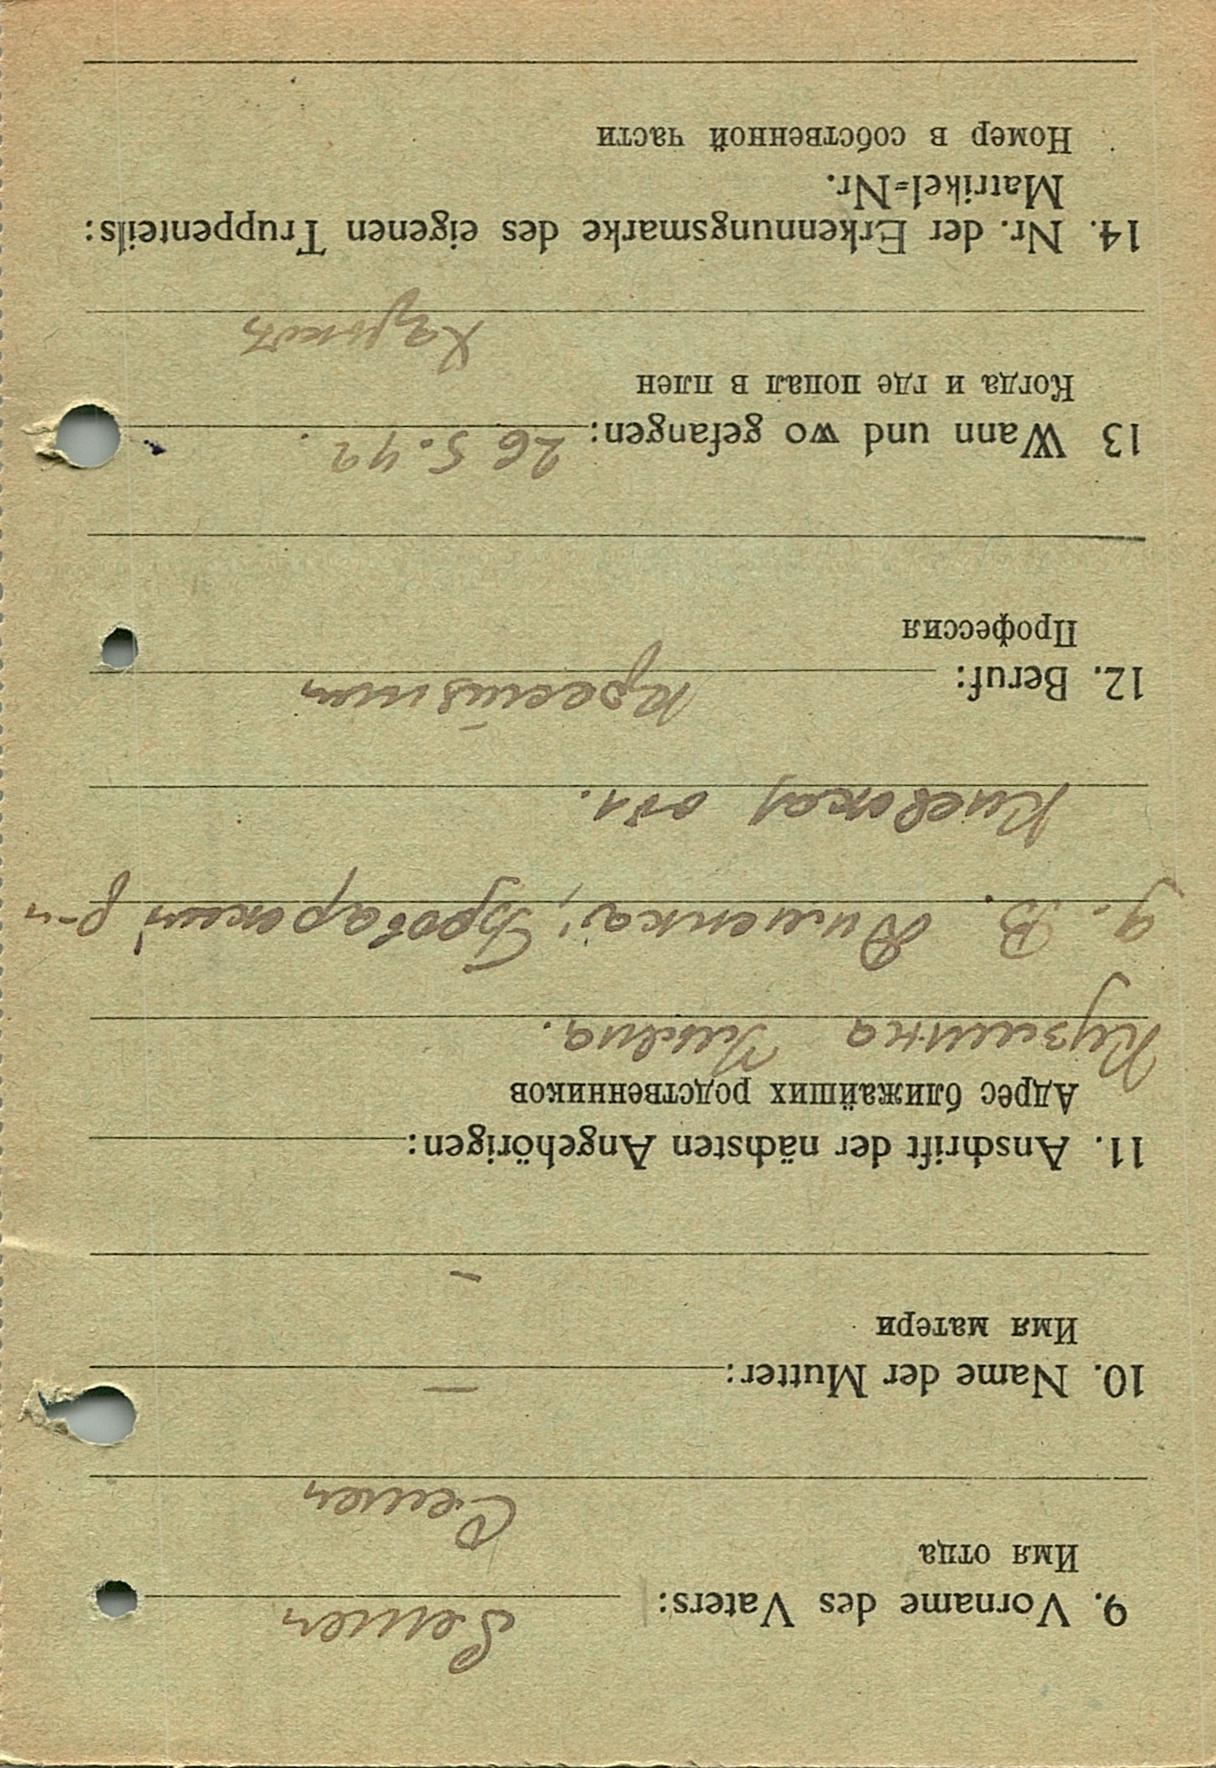 9. Vorname des Vaters: Semen
Имя отца
Семен
10. Name der Mutter: —
Имя матери
—
11. Anschrift der nächsten Angehörigen:
Адрес ближайших родственников
Кузьмина
д. В. Дименка, Броварской р-н
Киевская обл.
12. Beruf:
крестьянин
Профессия
13 Wann und wo gefangen: 26 5. 42.
Когда и где попал в плен
Харьков
14. Nr. der Erkennungsmarke des eigenen Truppenteils:
Matrikel=Nr.
Номер в собственной части